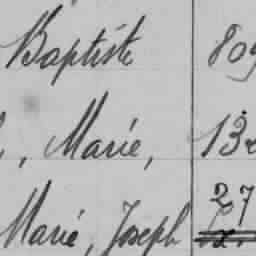 Baptiste 809
, Marie, 132
27
Marie, Joseph